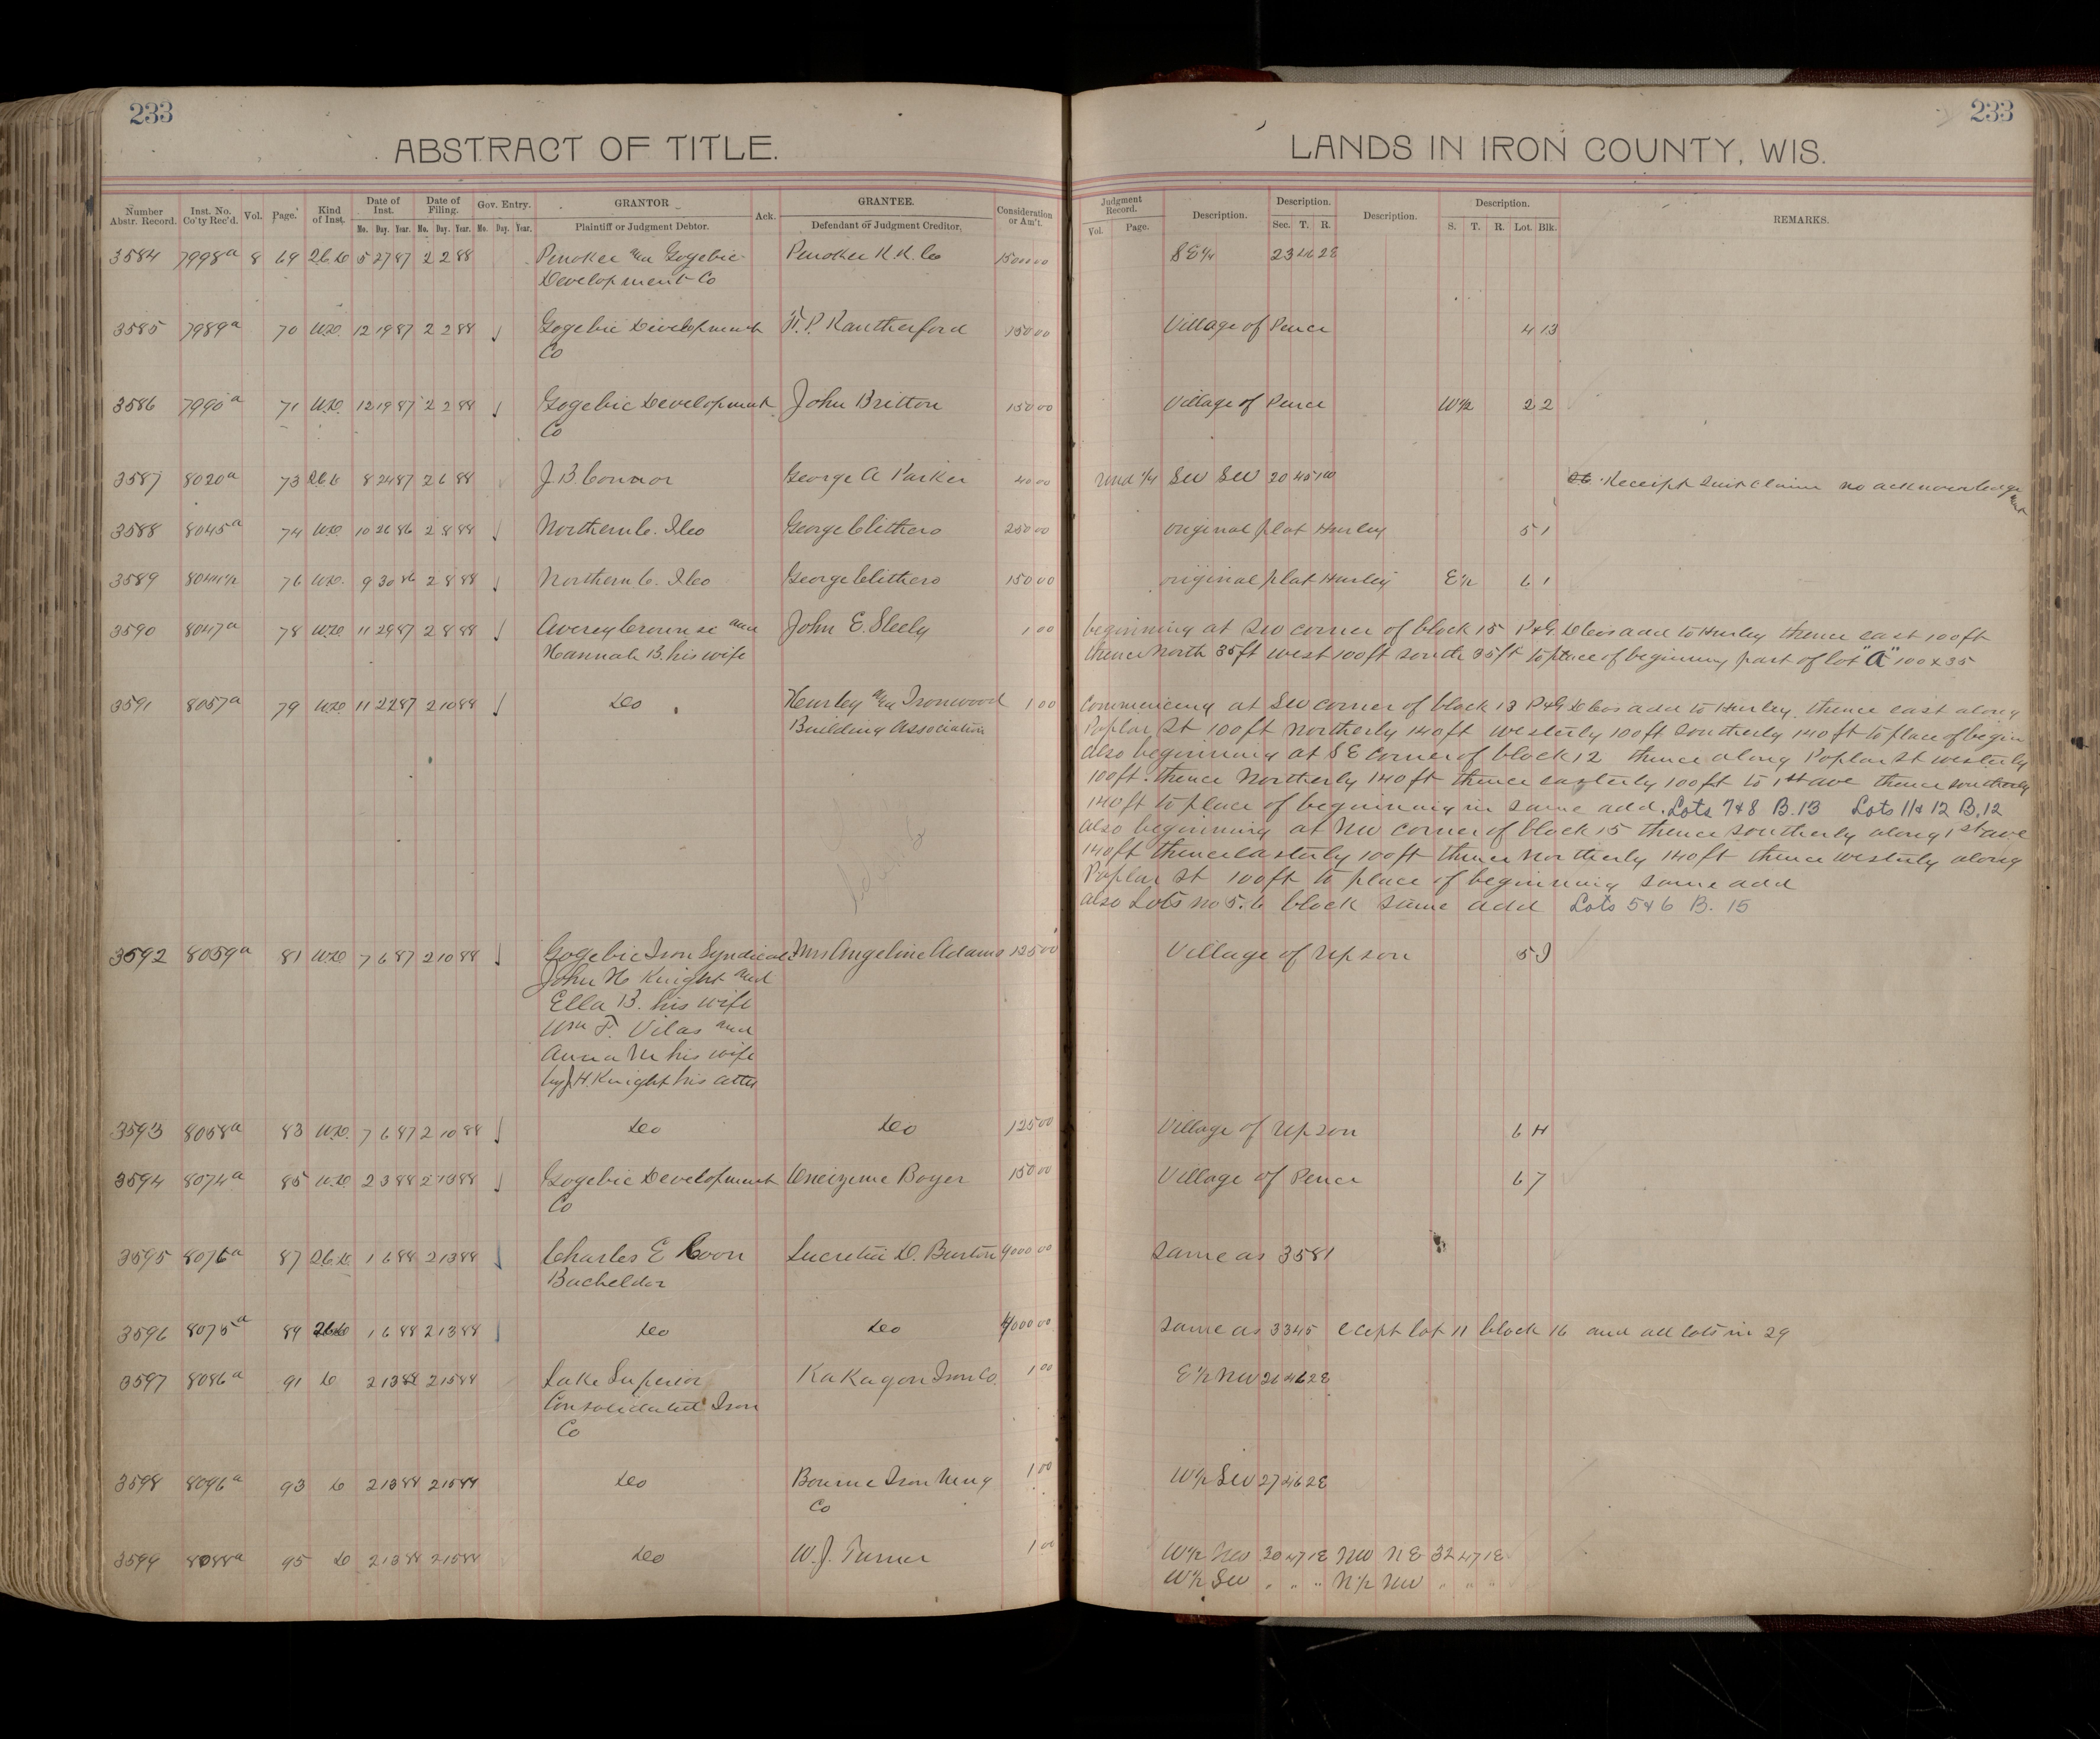 233
233
ABSTRACT OF TITLE.
LANDS IN IRON COUNTY, WIS.
Number Abstr. Record. Inst. No. Co'ty Rec'd. Vol. Page. Kind of Inst. Date of Inst. Mo. Day. Year. Date of Filing. Mo. Day. Year. Gov. Entry. Mo. Day. Year. GRANTOR Plaintiff or Judgment Debtor. Ack. GRANTEE. Defendant or Judgment Creditor. Consideration or Am't. Judgment Record. Vol. Page. Description. Description. Sec. T. R. Description. Description. S. T. R. Lot. Blk. REMARKS.
3584 7998a 8 69 5 27 87 2 2 88 Penokee and Gogebic Penokee R.R. Co SE 1/4 23 46 2E
Development Co
3585 7989a 70 WD. 12 19 87 2 2 88 Gogebic Development 150 00 Village of Pence 4 13
Co
3586 7990a 71 WD. 12 19 87 2 2 88 Gogebic Development John Britton 150 00 Village of Pence W 1/2 2 2
Co
3587 8020a 73 8 24 87 2 6 88 J B. Connor George A Parker 40 00 und 1/4 SW SW 20 45 1E Receipt Quit Claim no acknowledge
ment
3588 8045a 74 WD. 10 26 86 2 8 88 Northern C. I Co George Clithero 250 00 original plat Hurley 5 1
3589 76 WD. 9 30 86 2 8 88 Northern C. I Co George Clithero 150 00 original plat Hurley E 1/2 6 1
3590 8047a 78 WD. 11 29 87 2 8 88 Averey Crounse and John E. Sleely 1 00 beginning at SW corner of block 15 P&G Dcos add to Hurley thence east 100 ft
Hannah B. his wife thence North 35 ft west 100 ft south 35 ft to place of beginning part of lot "A" 100 x 35
3591 8057a 79 WD 11 22 87 2 10 88 Do Hurley and Ironwood 1 00 Commencing at SW corner of block 13 P&G Dcos add to Hurley. thence east along
Building Association Poplar St 100 ft Northerly 140 ft westerly 100 ft Southerly 140 ft to place of begin
also beginning at SE corner of block 12 thence along Poplar St westerly
100 ft. thence Northerly 140 ft thence easterly 100 ft to 1st ave thence southerly
140 ft to place of beginning in same add. Lots 7&8 B.13 Lots 11& 12 B.12
also beginning at NW corner of block 15 thence southerly along 1st ave
140 ft thence easterly 100 ft thence Northerly 140 ft thence westerly along
Poplar St 100 ft to place of beginning same add
also Lots no 5. 6 block same add Lots 5&6 B. 15
3592 8059a 81 WD 7 6 87 2 10 88 Gogebic Iron Syndicate Mrs Angeline Adams 125 00 Village of Upson 5 I
John H Knight and
Ella B. his wife
Wm F. Vilas and
Anna M his wife
by J H Knight his atty
3593 8058a 83 WD. 7 6 87 2 10 88 Do Do 125 00 Village of Upson 6 H
3594 8074a 85 WD 2 3 88 2 13 88 Gogebic Development Boyer 150 00 Village of Pence 6 7
Co
3595 8076a 87 1 6 88 2 13 88 Charles E Coon Lucretia D. Burton 4000 00 same as 3581
Bacheldor
3596 8075a 89 1 6 88 2 13 88 Do Do 4000 00 same as 3345 ecept lot 11 block 16 and all lots in 29
3597 8086a 91 D 2 13 88 2 15 88 Lake Superior KaKagon Iron Co 1 00 E 1/2 NW 26 46 2E
Consolidated Iron
Co
3598 8096a 93 D 2 13 88 2 15 88 Do Bourne Iron Mng 1 00 W 1/2 SW 27 46 2E
Co
3599 8088a 95 D 2 13 88 2 15 88 Do W. J. Turner 1 00 W 1/2 NW 30 47 1E NW NE 32 47 1E
W 1/2 SW " " " N 1/2 NW " " "